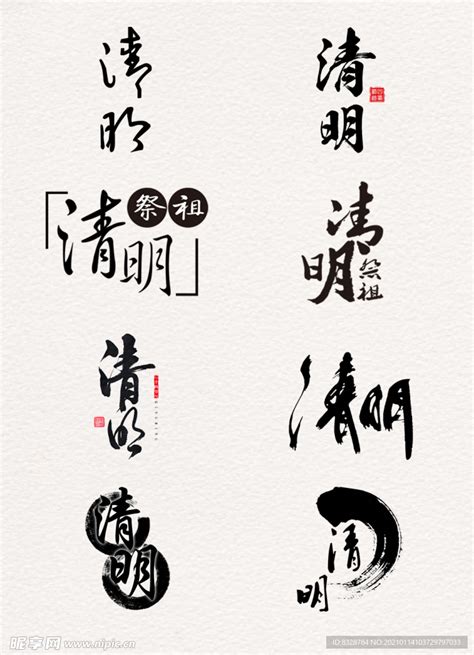 清明
清明
清明
祭祖
清明
祭祖
清明
清明
清明
清明
昵享网 www.nipic.cn
ID:8328784 NO:20210114103729797033